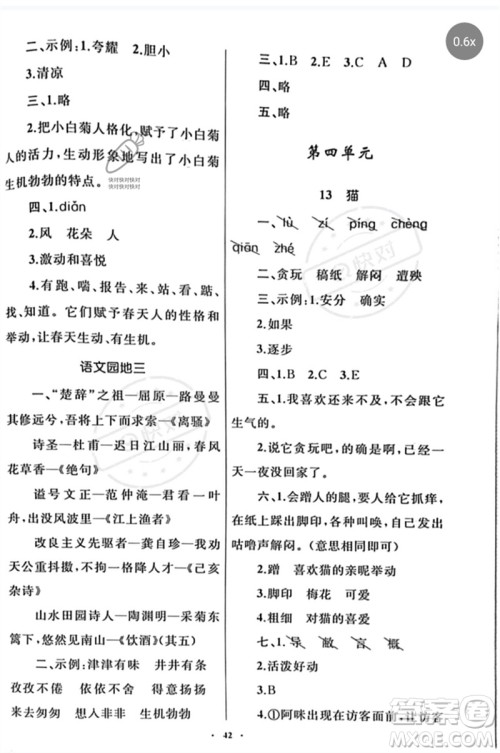 0.6x
二、示例:1.夸耀　2.胆小
3.清凉
三、1.略
2.把小白菊人格化,赋予了小白菊
人的活力,生动形象地写出了小白菊
生机勃勃的特点。
四、1.diǎn
2.风　花朵　人
3.激动和喜悦
4.有跑、喘、报告、来、站、看、踮、
找、知道。它们赋予春天人的性格和
举动,让春天生动、有生机。
语文园地三
一、“楚辞”之祖—屈原—路曼曼
其修远兮,吾将上下而求索—《离骚》
诗圣—杜甫—迟日江山丽,春风
花草香—《绝句》
谥号文正—范仲淹—君看一叶
舟,出没风波里—《江上渔者》
改良主义先驱者—龚自珍—我劝
天公重抖擞,不拘一格降人才—《己亥
杂诗》
山水田园诗人—陶渊明—采菊东
篱下,悠然见南山—《饮酒》(其五)
二、示例:津津有味　井井有条
孜孜不倦　恋恋不舍　念念不忘
来去匆匆　想入非非　生机勃勃
三、1.B　2.B　3.C　A　D
四、略
五、略
第四单元
13　猫
一、lù　zī　píng　chèng
qiān　zhé
二、贪玩　稿纸　解闷　遭殃
三、示例:1.安分　确实
2.如果
3.逐步
四、1.B　2.C　3.E
五、1.我喜欢还来不及,不会跟它
生气的。
2.说它贪玩吧,的确是呀,因为它一
天一夜不回家。
六、1.会蹭人的腿,要人给它抓痒,
在纸上踩出脚印,各种叫唤,自己发出
咕噜声解闷。(意思相同即可)
2.蹭　喜欢猫的亲昵举动
3.脚印　梅花　喜爱
4.粗细　对猫的喜爱
七、1.导　敌　言　概
2.活泼好动
3.B
4.①阿咪出现在访客面前,让访客
42
快对
答案圈
MXQE.COM